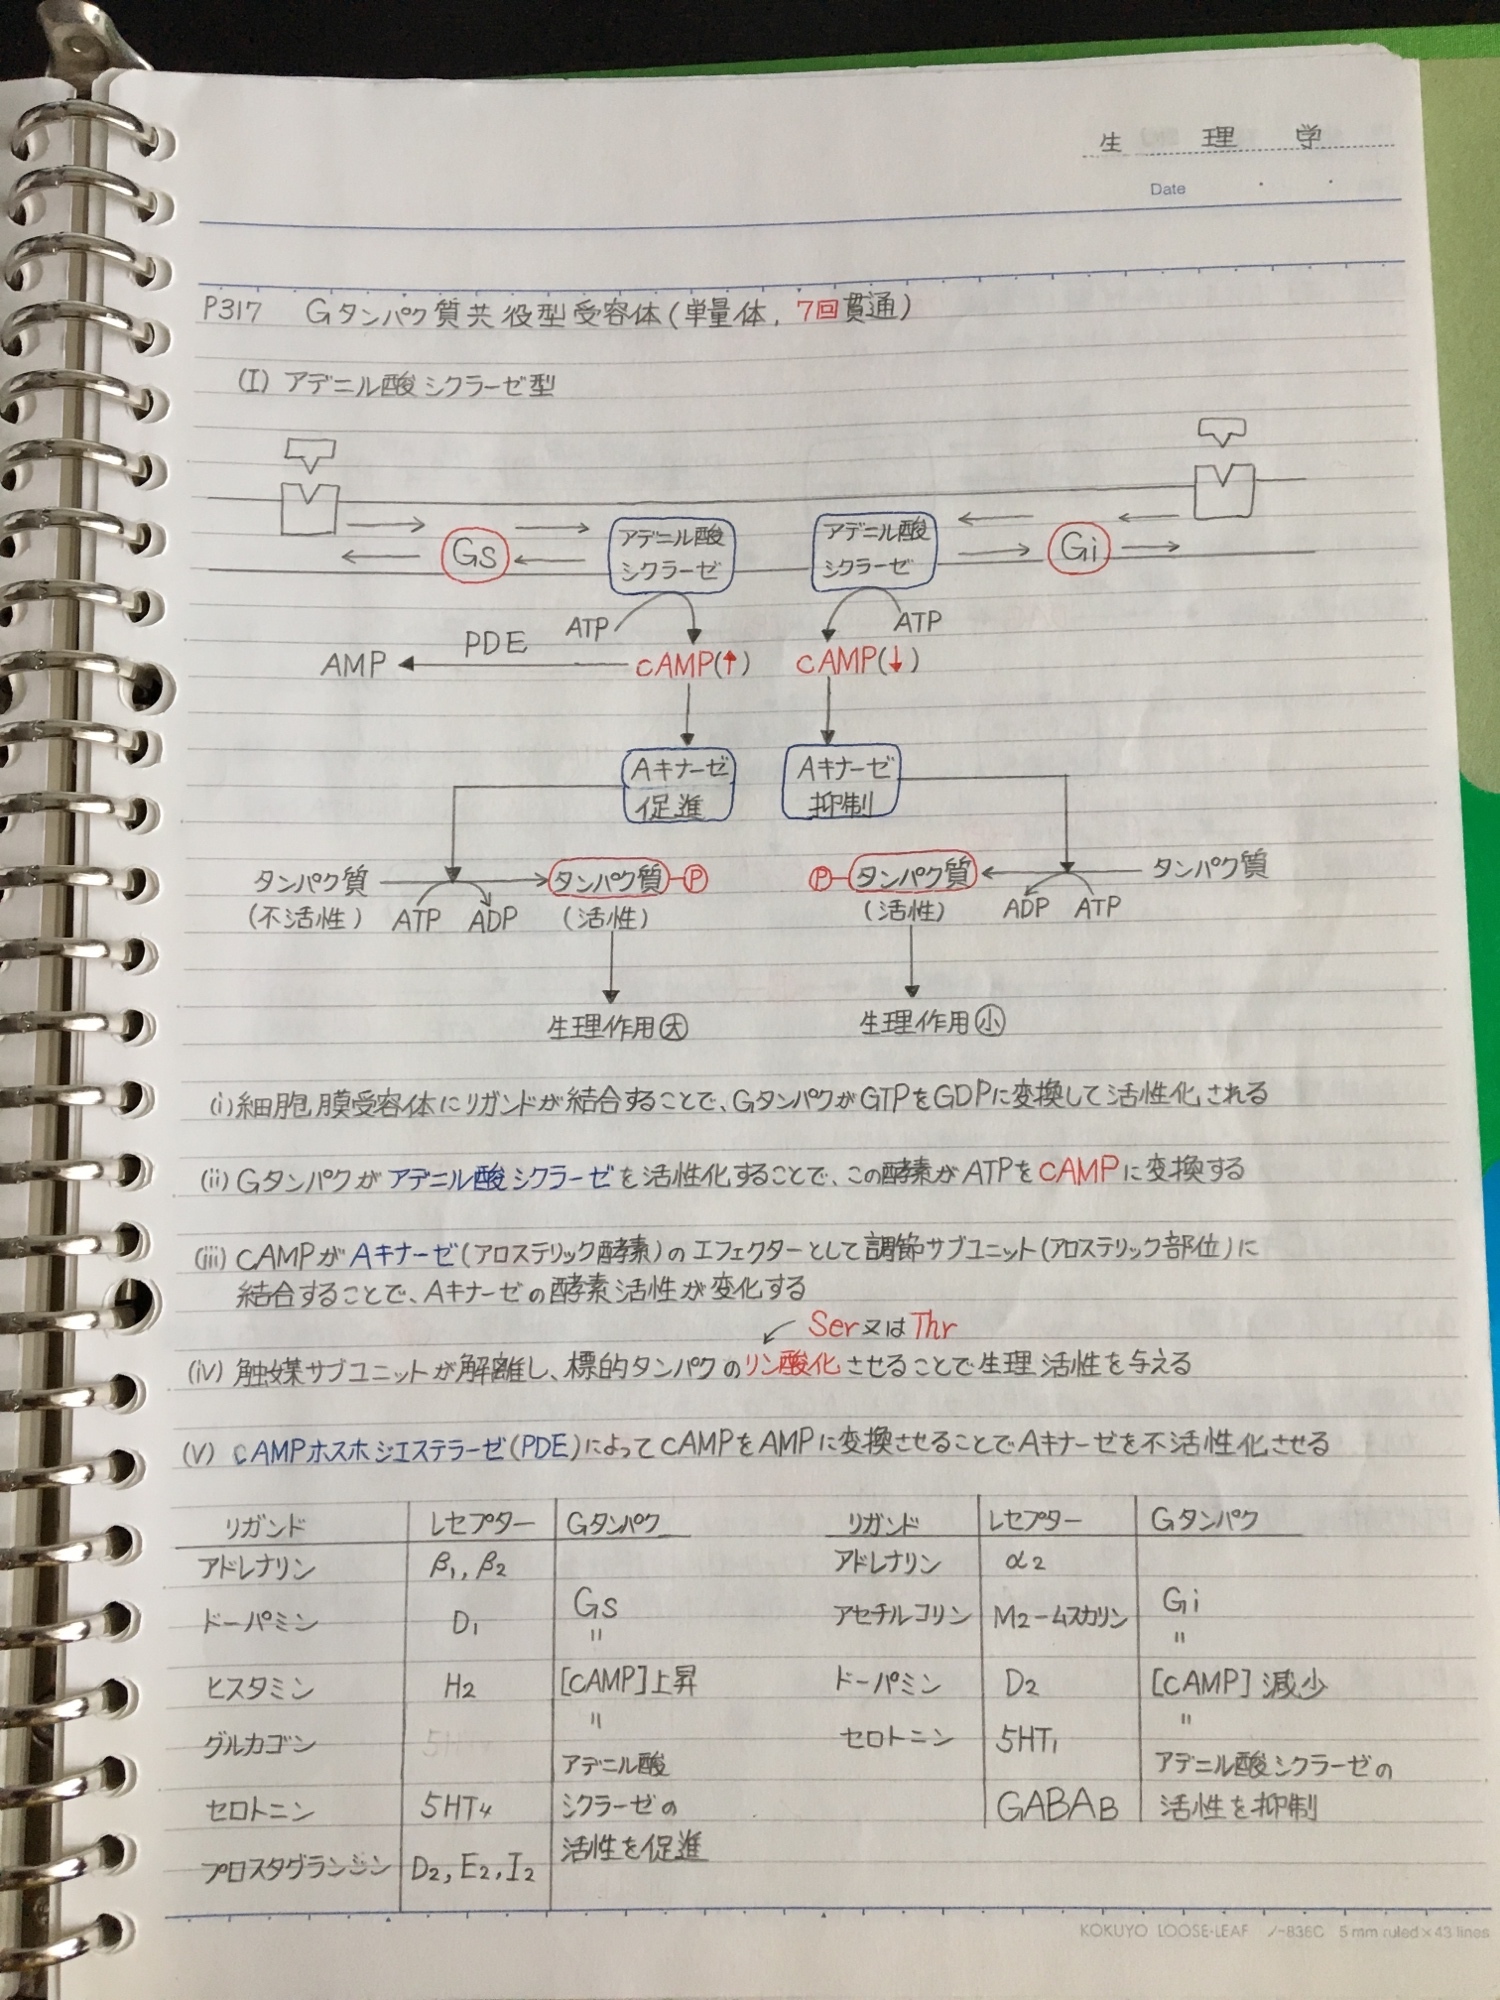 生 理 学
Date
P317 Gタンパク質共役型受容体(単量体, 7回貫通)
(I) アデニル酸シクラーゼ型
Gs
アデニル酸
シクラーゼ
アデニル酸
シクラーゼ
Gi
ATP
ATP
AMP
PDE
cAMP(↑)
cAMP(↓)
Aキナーゼ
促進
Aキナーゼ
抑制
タンパク質
(不活性)
ATP ADP
タンパク質-P
(活性)
P-タンパク質
(活性)
ADP ATP
タンパク質
生理作用大
生理作用小
(i) 細胞膜受容体にリガンドが結合することで、GタンパクがGTPをGDPに変換して活性化される
(ii) Gタンパクがアデニル酸シクラーゼを活性化することで、この酵素がATPをcAMPに変換する
(iii) cAMPがAキナーゼ(アロステリック酵素)のエフェクターとして調節サブユニット(アロステリック部位)に
結合することで、Aキナーゼの酵素活性が変化する
Ser又はThr
(iv) 触媒サブユニットが解離し、標的タンパクのリン酸化させることで生理活性を与える
(V) cAMPホスホジエステラーゼ(PDE)によってcAMPをAMPに変換させることでAキナーゼを不活性化させる
リガンド レセプター Gタンパク
アドレナリン β1, β2
ドーパミン D1
ヒスタミン H2
グルカゴン
セロトニン 5HT4
プロスタグランジン D2, E2, I2
Gs
〃
[cAMP]上昇
〃
アデニル酸
シクラーゼの
活性を促進
リガンド レセプター Gタンパク
アドレナリン α2
アセチルコリン M2-ムスカリン
ドーパミン D2
セロトニン 5HT1
GABAB
Gi
〃
[cAMP]減少
〃
アデニル酸シクラーゼの
活性を抑制
KOKUYO LOOSE-LEAF ノ-836C 5 mm ruled×43 lines